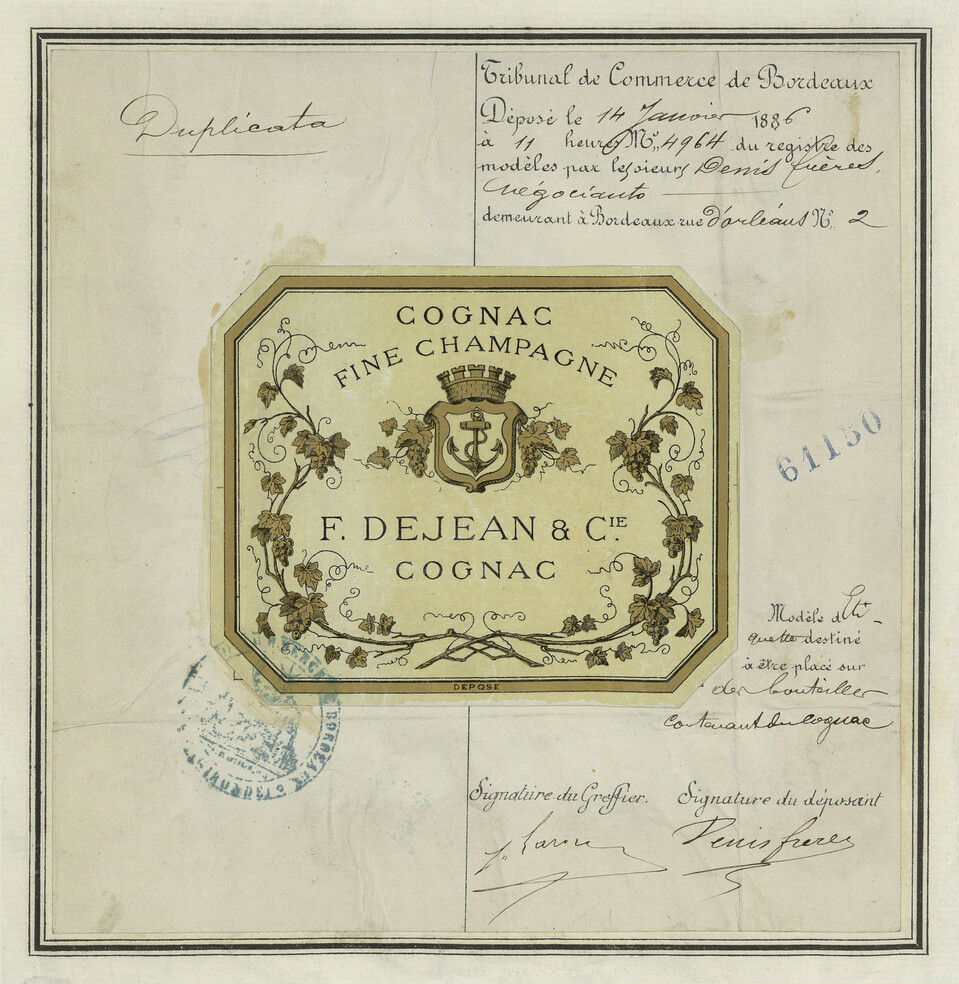 Duplicata
Tribunal de Commerce de Bordeaux
Déposé le 14 Janvier 1886
à 11 heures Nº 4964 du registre des
modèles par les sieurs Denis frères,
négociants
demeurant à Bordeaux rue d'orléans Nº 2
COGNAC
FINE CHAMPAGNE
F. DEJEAN & CIE
COGNAC
DÉPOSÉ
61150
Modèle d'Eti-
quette destiné
à être placé sur
des bouteilles
contenant du cognac
BORDEAUX
Signature du Greffier. Signature du déposant
Denis freres